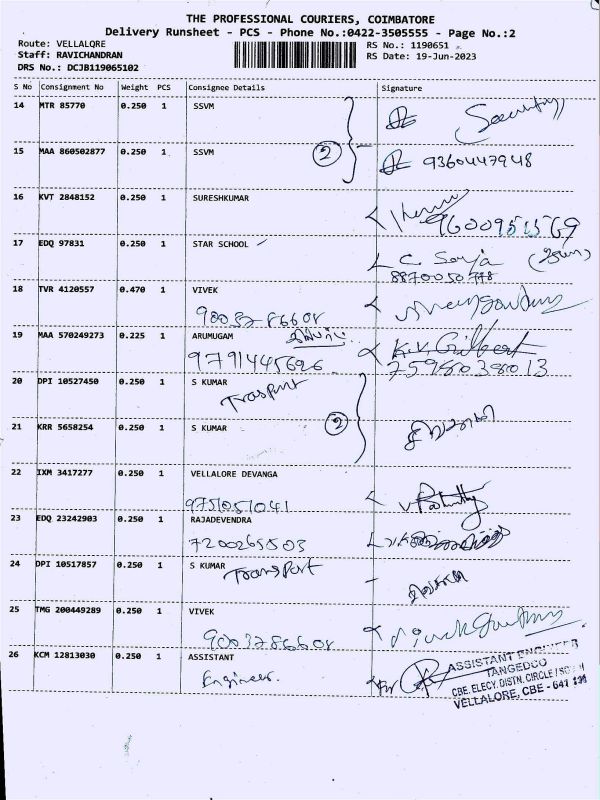 THE PROFESSIONAL COURIERS, COIMBATORE
Delivery Runsheet - PCS - Phone No.:0422-3505555 - Page No.:2
Route: VELLALORE
RS No.: 1190651
Staff: RAVICHANDRAN
RS Date: 19-Jun-2023
DRS No.: DCJB119065102
S No Consignment No Weight PCS Consignee Details Signature
14 MTR 85770 0.250 1 SSVM Security
15 MAA 860502877 0.250 1 SSVM
2 9360447948
16 KVT 2848152 0.250 1 SURESHKUMAR
9600951569
17 EDQ 97831 0.250 1 STAR SCHOOL
C. Sarja
8870050778
18 TVR 4120557 0.470 1 VIVEK
19 MAA 570249273 0.225 1 ARUMUGAM
9791445626
K.V. Gilbert
7598038013
20 DPI 10527450 0.250 1 S KUMAR
Trasport
21 KRR 5658254 0.250 1 S KUMAR
2
22 IXM 3417277 0.250 1 VELLALORE DEVANGA
9751051041
23 EDQ 23242903 0.250 1 RAJADEVENDRA
7200265503
24 DPI 10517857 0.250 1 S KUMAR
Transport
25 TMG 200449289 0.250 1 VIVEK
26 KCM 12813030 0.250 1 ASSISTANT
Engineer.
ASSISTANT ENGINEER
TANGEDCO
CBE. ELECY. DISTN. CIRCLE
VELLALORE, CBE - 641